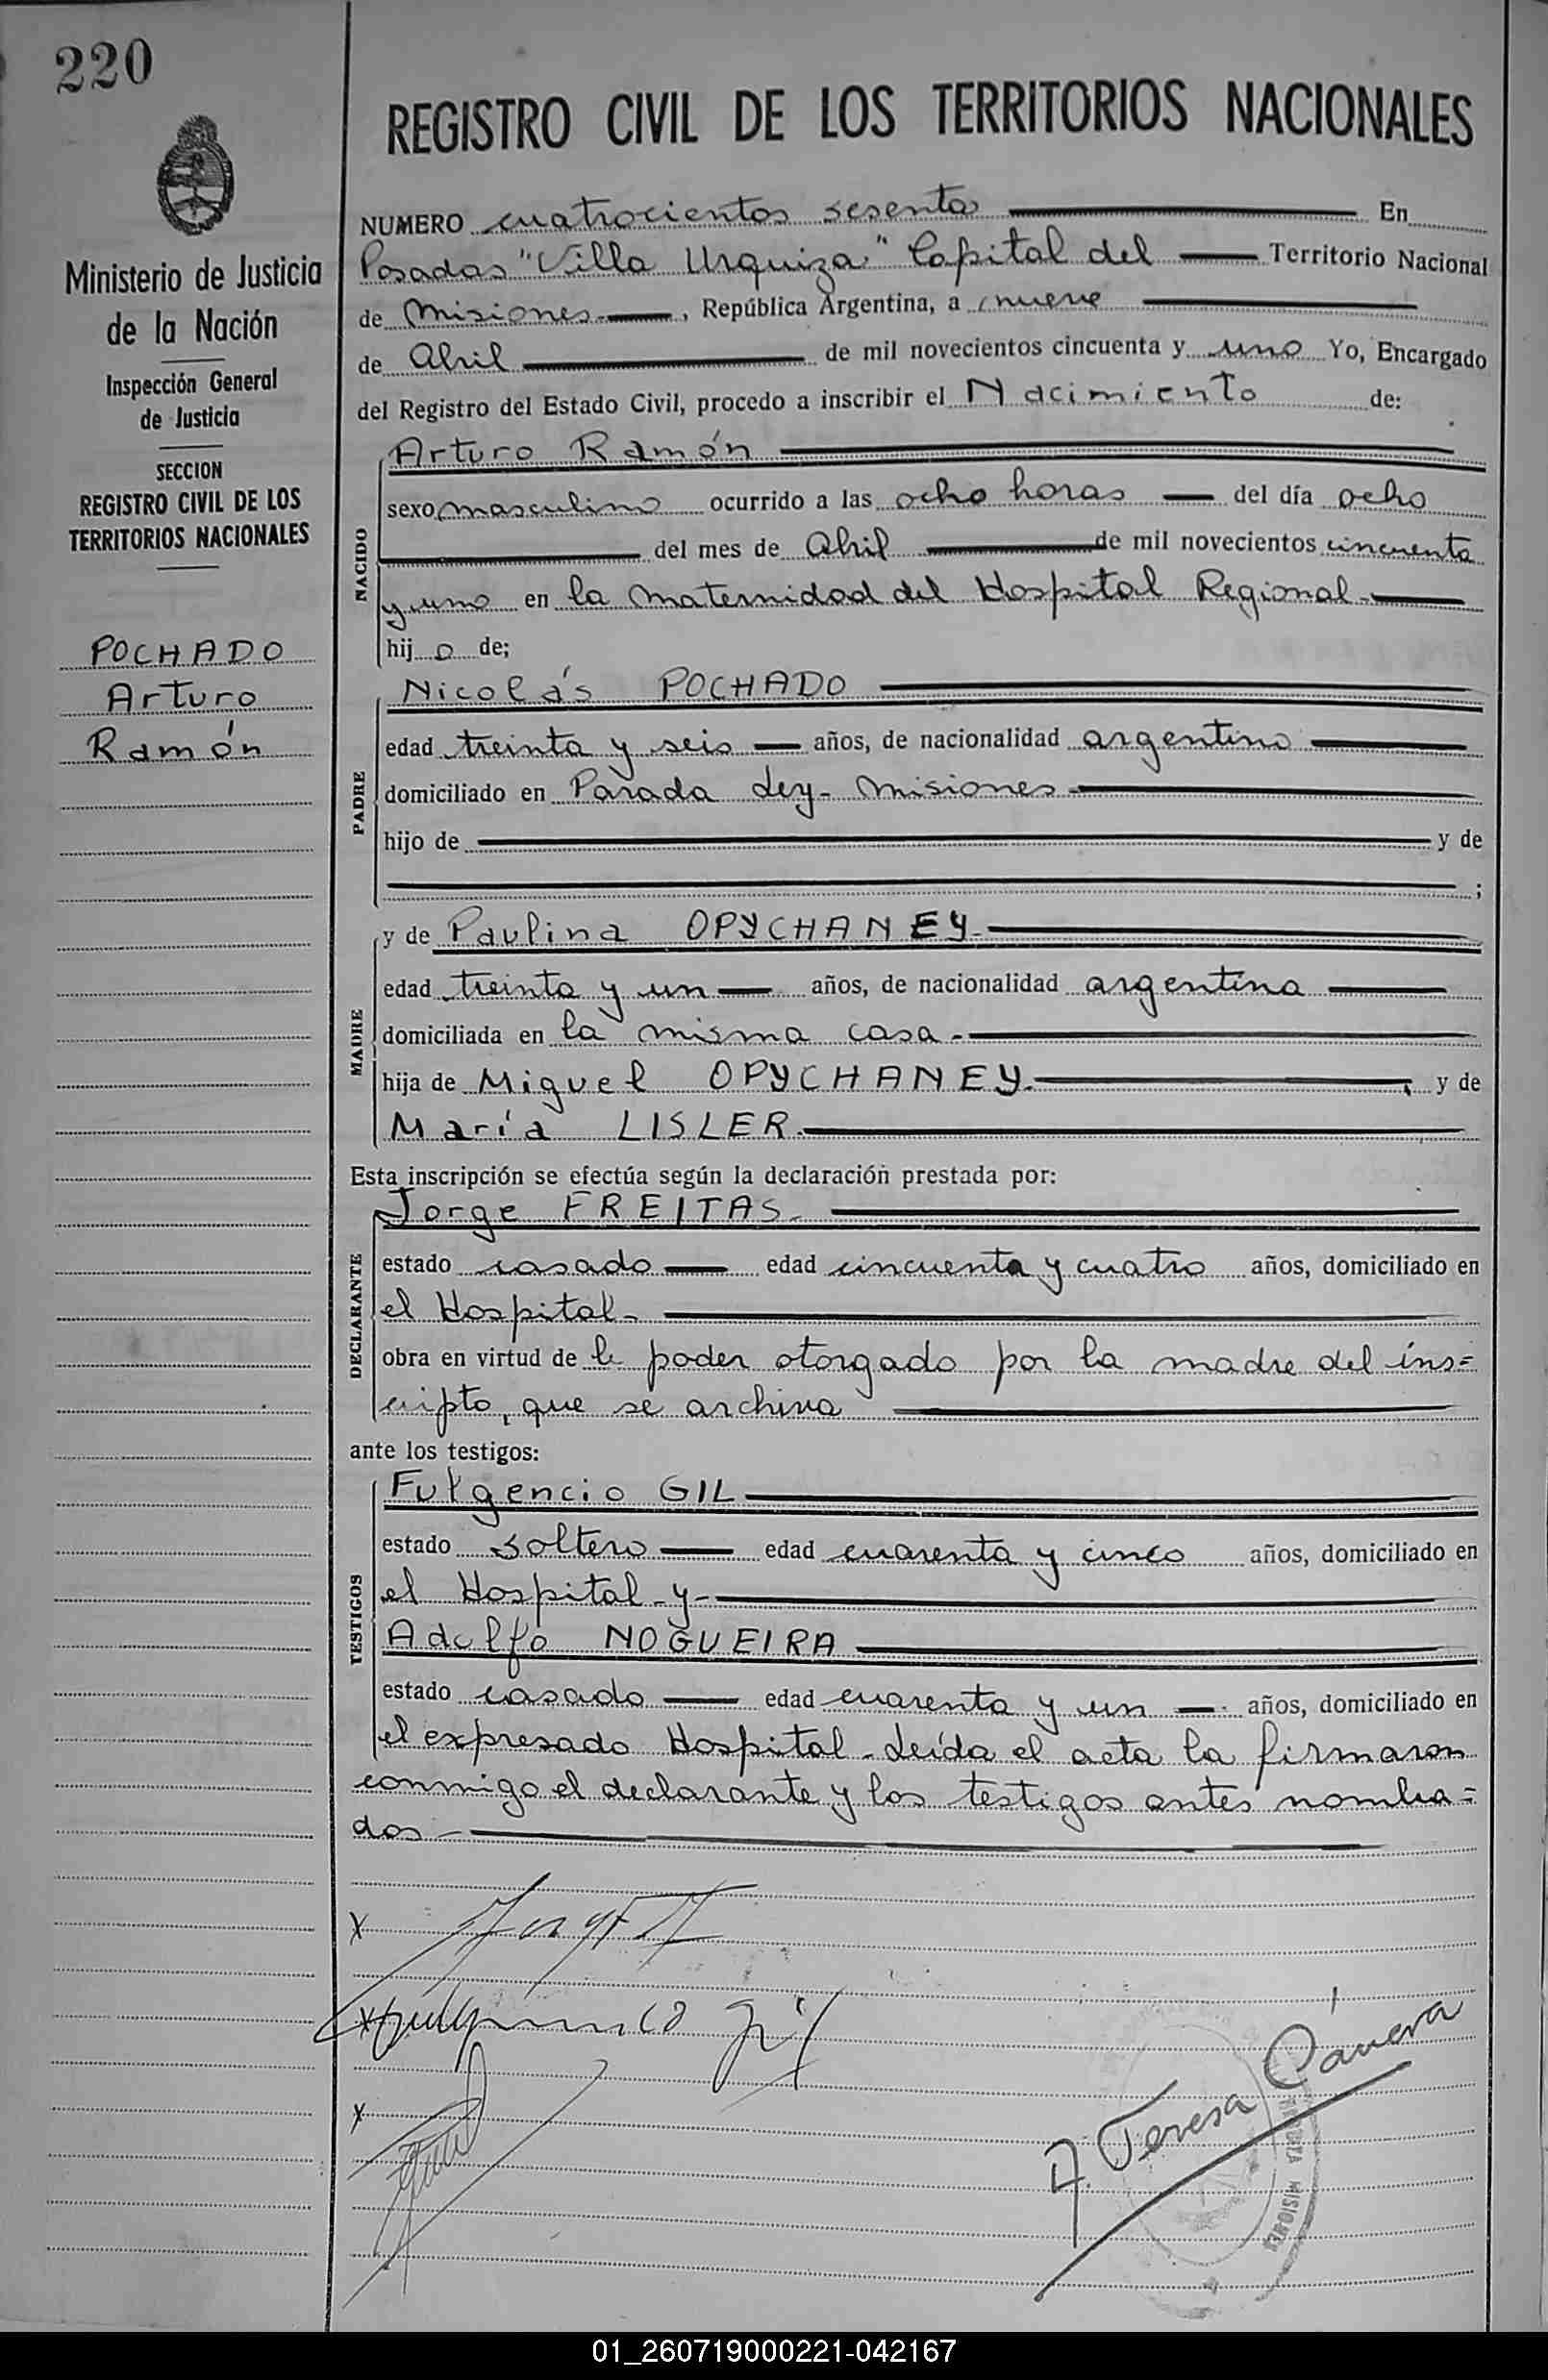 220
Ministerio de Justicia
de la Nación
Inspección General
de Justicia
SECCION
REGISTRO CIVIL DE LOS
TERRITORIOS NACIONALES
POCHADO
Arturo
Ramón
REGISTRO CIVIL DE LOS TERRITORIOS NACIONALES
NUMERO cuatrocientos sesenta En
Posadas "Villa Urquiza" Capital del Territorio Nacional
de Misiones, República Argentina, a nueve
de Abril de mil novecientos cincuenta y uno Yo, Encargado
del Registro del Estado Civil, procedo a inscribir el Nacimiento de:
NACIDO
Arturo Ramón
sexo masculino ocurrido a las ocho horas del día ocho
del mes de Abril de mil novecientos cincuenta
y uno en la Maternidad del Hospital Regional.
hij o de;
PADRE
Nicolás POCHADO
edad treinta y seis años, de nacionalidad argentino
domiciliado en Parada Ley - Misiones
hijo de y de
;
MADRE
y de Paulina OPYCHANEY
edad treinta y un años, de nacionalidad argentina
domiciliada en la misma casa.
hija de Miguel OPYCHANEY. y de
María LISLER.
Esta inscripción se efectúa según la declaración prestada por:
DECLARANTE
Jorge FREITAS.
estado casado edad cincuenta y cuatro años, domiciliado en
el Hospital
obra en virtud de poder otorgado por la madre del ins=
cripto, que se archiva
ante los testigos:
TESTIGOS
Fulgencio GIL
estado soltero edad cuarenta y cinco años, domiciliado en
el Hospital - y -
Adolfo NOGUEIRA
estado casado edad cuarenta y un años, domiciliado en
el expresado Hospital. Leída el acta la firmaron
conmigo el declarante y los testigos antes nombra=
dos
X
X Fulgencio Gil
X
A. Teresa Cánera
MISIONES
01_260719000221-042167